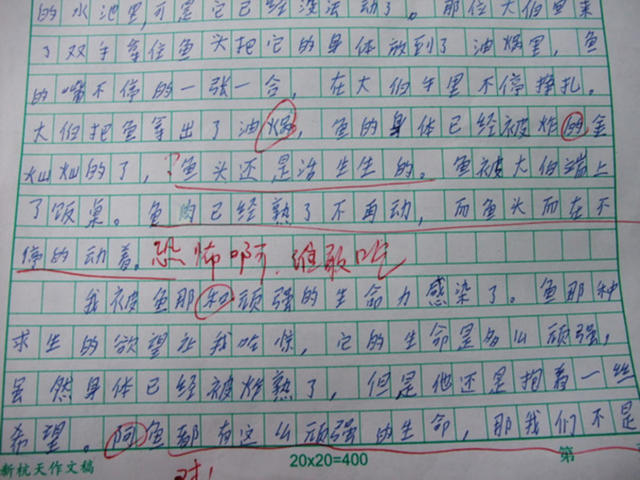 的水池里,可是它已经没法动了。那位大伯里来
了双手拿住鱼头把它的身体放到了油锅里,鱼
的嘴不停的一张一合,在大伯手里不停挣扎。
大伯把鱼拿出了油锅,鱼的身体已经被炸的金
灿灿的了,?鱼头还是活生生的。鱼被大伯端上
了饭桌。鱼肉已经熟了不再动,而鱼头而在不
停的动着。恐怖啊,谁敢吃
我被鱼那种顽强的生命力感染了。鱼那种
求生的欲望让我吃惊,它的生命是多么顽强,
虽然身体已经被炸熟了,但是他还是抱着一丝
希望。阿鱼都有这么顽强的生命,那我们不是
新杭天作文稿 20x20=400 第
对!